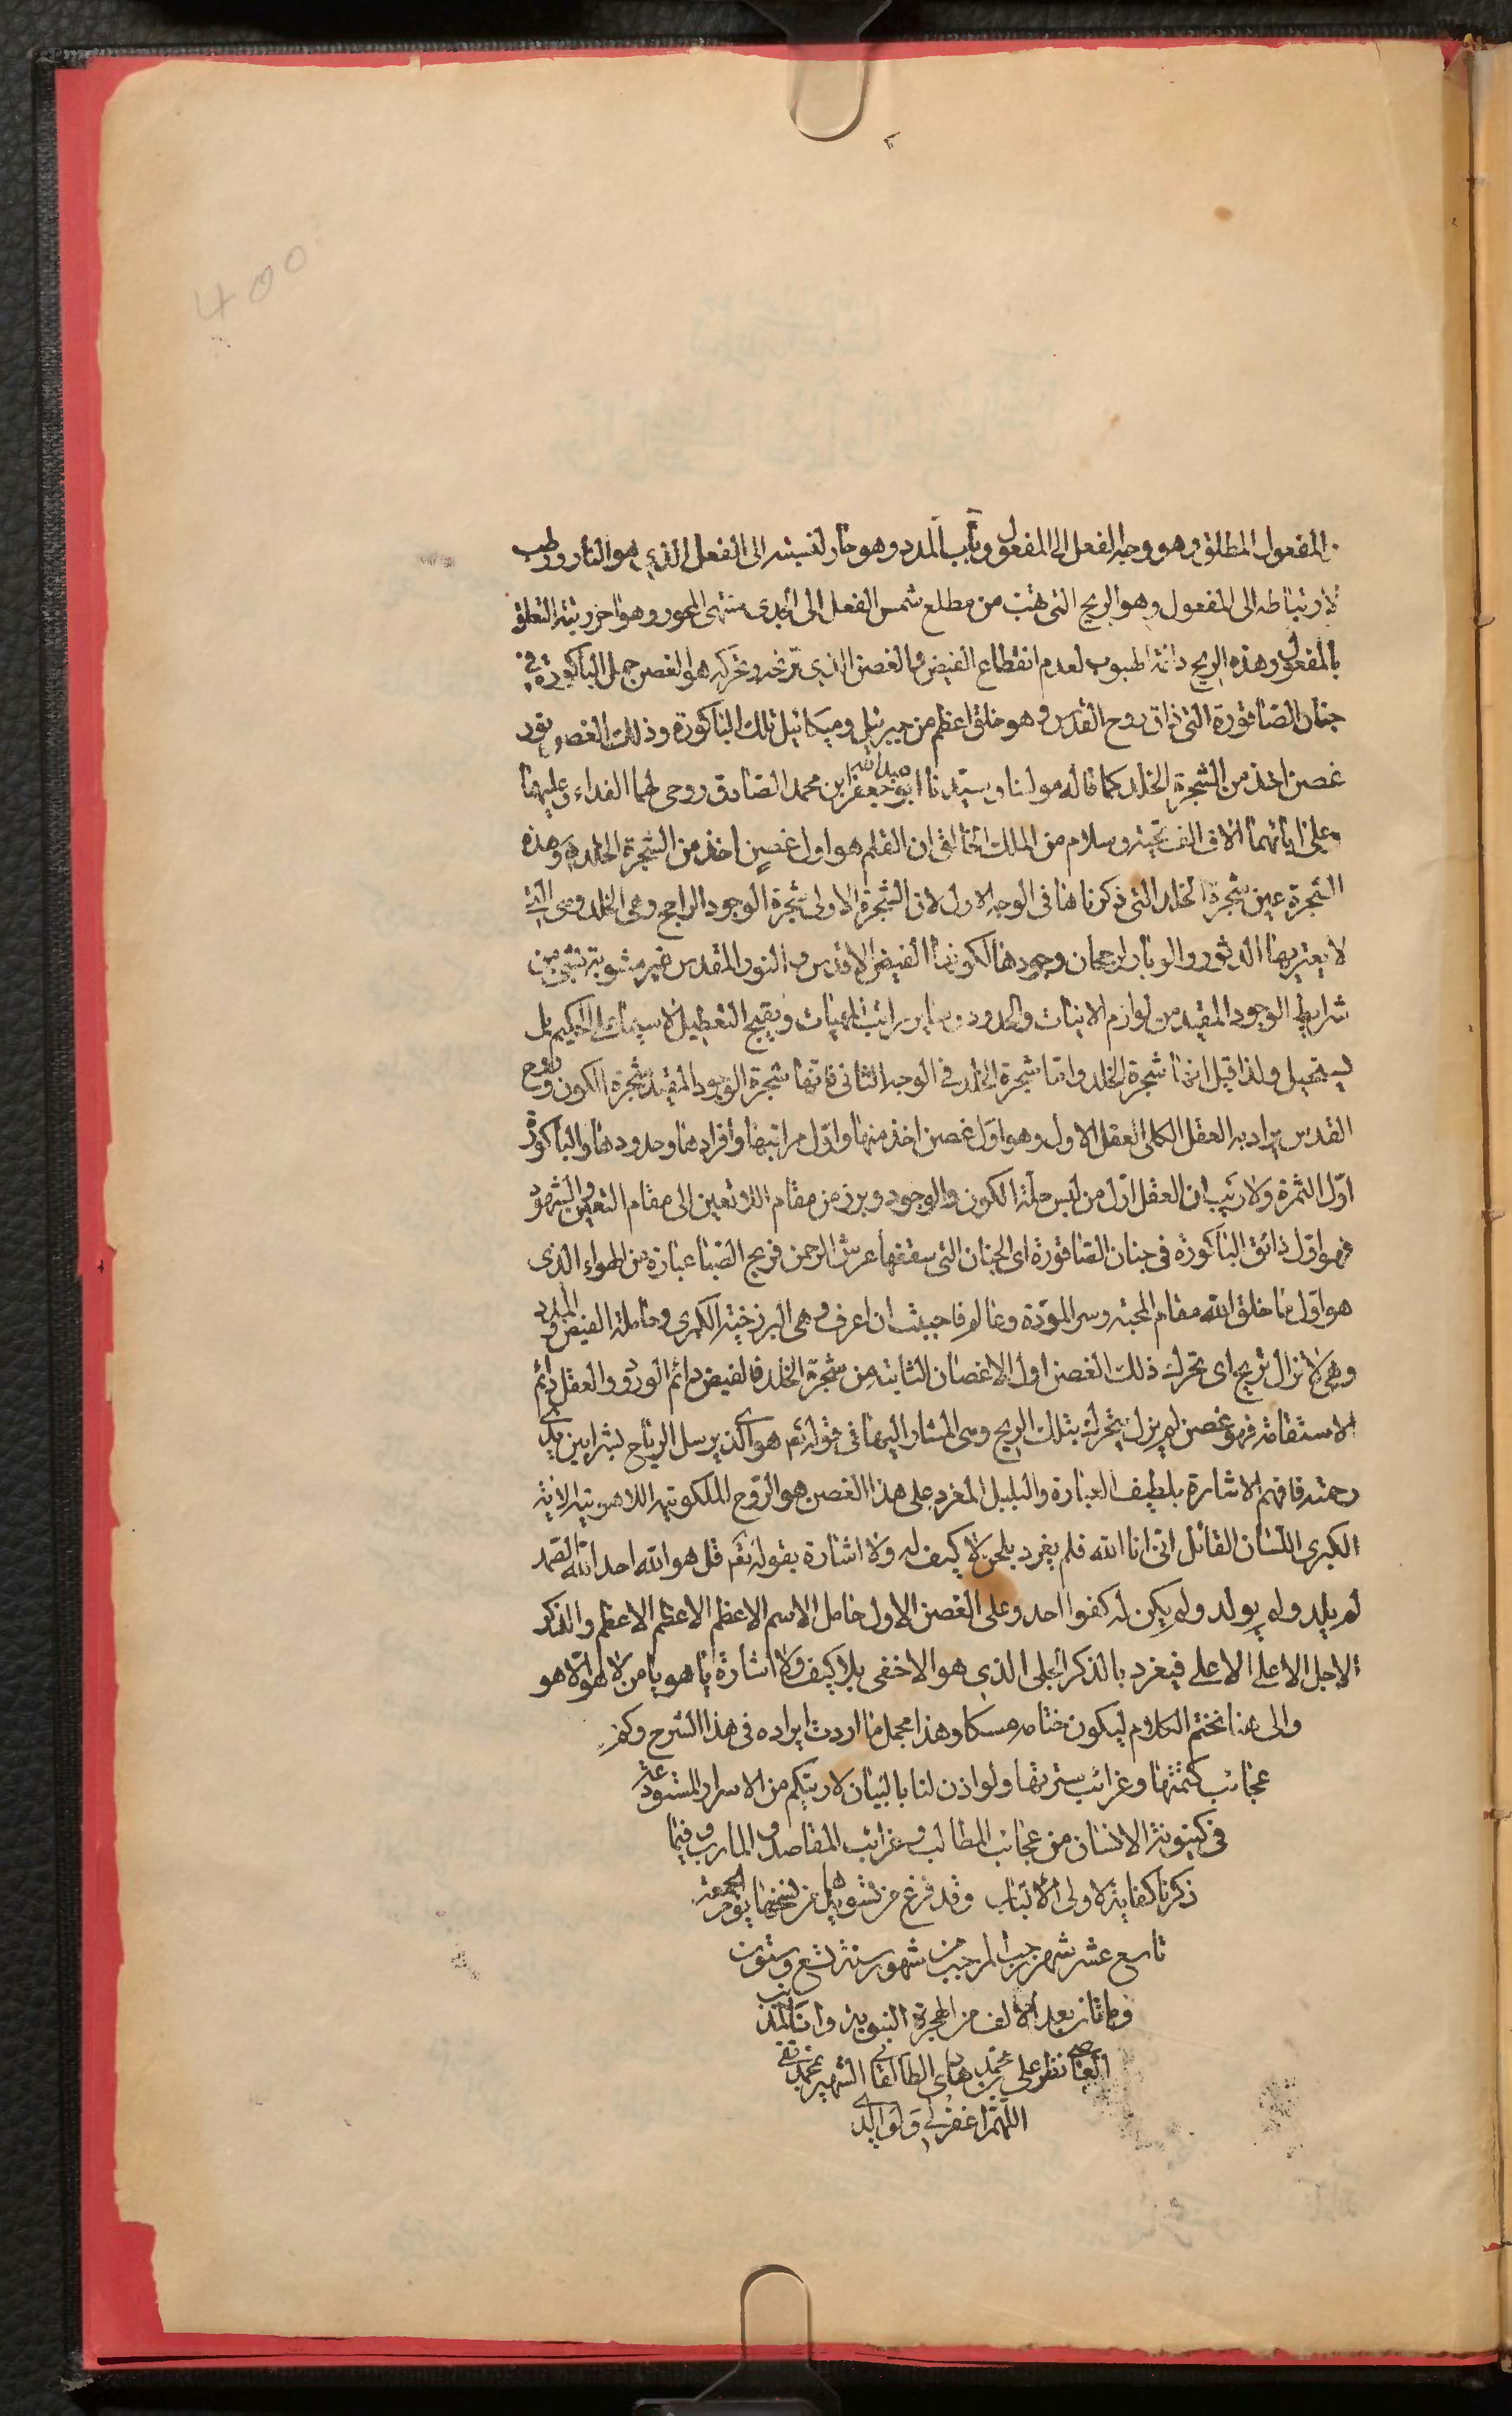 400
المفعول المطلق وهو وجه الفعل الى المفعول وباب المدد وهو حار لنسبته الى الفعل الذي هو النار ورطب
لارتباطه الى المفعول وهو الريح التي هبت من مطلع شمس الفعل الى منتهى المحور وهو اخر رتبة التعلق
بالمفعول وهذه الريح دائمة الهبوب لعدم انقطاع الفيض والغصن الذي ترنحه وتحركه هو الغصن حمل الباكورة في
جنان الصاقورة التي ذاق روح القدس وهو خلق اعظم من جبرئيل وميكائيل تلك الباكورة وذلك الغصن
غصن اخذ من الشجرة الخلد كما قاله مولنا وسيدنا ابو عبد الله جعفر ابن محمد الصادق روحي لهما الفداء وعليهما
وعلى ابائهما الاف الف تحية وسلام من الملك الخالق ان القلم هو اول غصن اخذ من الشجرة الخلد وهذه
الشجرة عين شجرة الخلد التي ذكرناها في الوجه الاول لان الشجرة الاولى شجرة الوجود الراجح وهي الخلد وهي التي
لا يعتريها الدثور والوبار لرجحان وجودها لكونها الفيض الاقدس والنور المقدس غير مشوبة بشيء من
شرايط الوجود المقيد من لوازم الانيات والحدود وساير مراتب المهيات وتقبيح التعطيل لا سيما على الحكيم بل
يستحيل ولذا قيل انها شجرة الخلد واما شجرة الخلد في الوجه الثاني فانها شجرة الوجود المقيد شجرة الكون وروح
القدس يراد به العقل الكلي العقل الاول وهو اول غصن اخذ منها واول مراتبها وافرادها وحدودها والباكورة
اول الثمرة ولا ريب ان العقل اول من لبس حلة الكون والوجود وبرز من مقام اللاتعين الى مقام التعين والشهود
فهو اول ذائق الباكورة في جنان الصاقورة اي الجنان التي سقفها عرش الرحمن فريح الصبا عبارة من الهواء الذي
هو اول ما خلق الله مقام المحبة وسر المودة وعالم فاحببت ان اعرف وهي البرزخية الكبرى وحاملة الفيض والمدد
وهي لا تزال تريح اي تحرك ذلك الغصن اول الاغصان الثابتة من شجرة الخلد فالفيض دائم الورود والعقل دائم
الاستقامة فهو غصن لم يزل يتحرك بتلك الريح وهي المشار اليها في قوله تع هو الذي يرسل الرياح بشرا بين يدي
رحمته فافهم الاشارة بلطيف العبارة والبلبل المغرد على هذا الغصن هو الروح الملكوتية اللاهوتية الاية
الكبرى اللسان القائل اني انا الله فلم يغرد بلحن لا كيف له ولا اشارة بقوله تع قل هو الله احد الله الصمد
لم يلد ولم يولد ولم يكن له كفوا احد وعلى الغصن الاول حامل الاسم الاعظم الاعظم الاعظم والذكر
الاجل الاعلى الاعلى فيغرد بالذكر الجلي الذي هو الاخفى بلا كيف ولا اشارة يا هو يا من لا هو الا هو
والى هنا نختم الكلام ليكون ختامه مسكا وهذا مجمل ما اردت ايراده في هذا الشرح وكم من
عجائب كتمتها وغرائب سترتها ولو اذن لنا بالبيان لاريتكم من الاسرار المستودعة
في كينونة الانسان من عجائب المطالب وغرائب المقاصد والمارب وفيما
ذكرنا كفاية لاولى الالباب وقد فرغ من تسويدها بل من نسختها يوم الجمعة
تاسع عشر شهر رجب المرجب من شهور سنة تسع وستون
ومأتان بعد الالف من الهجرة النبوية وانا المذنب
العاصي نظر علي بن محمد هادي الطالقاني الشهير بمحمد تقي
اللهم اغفر لي ولوالدي